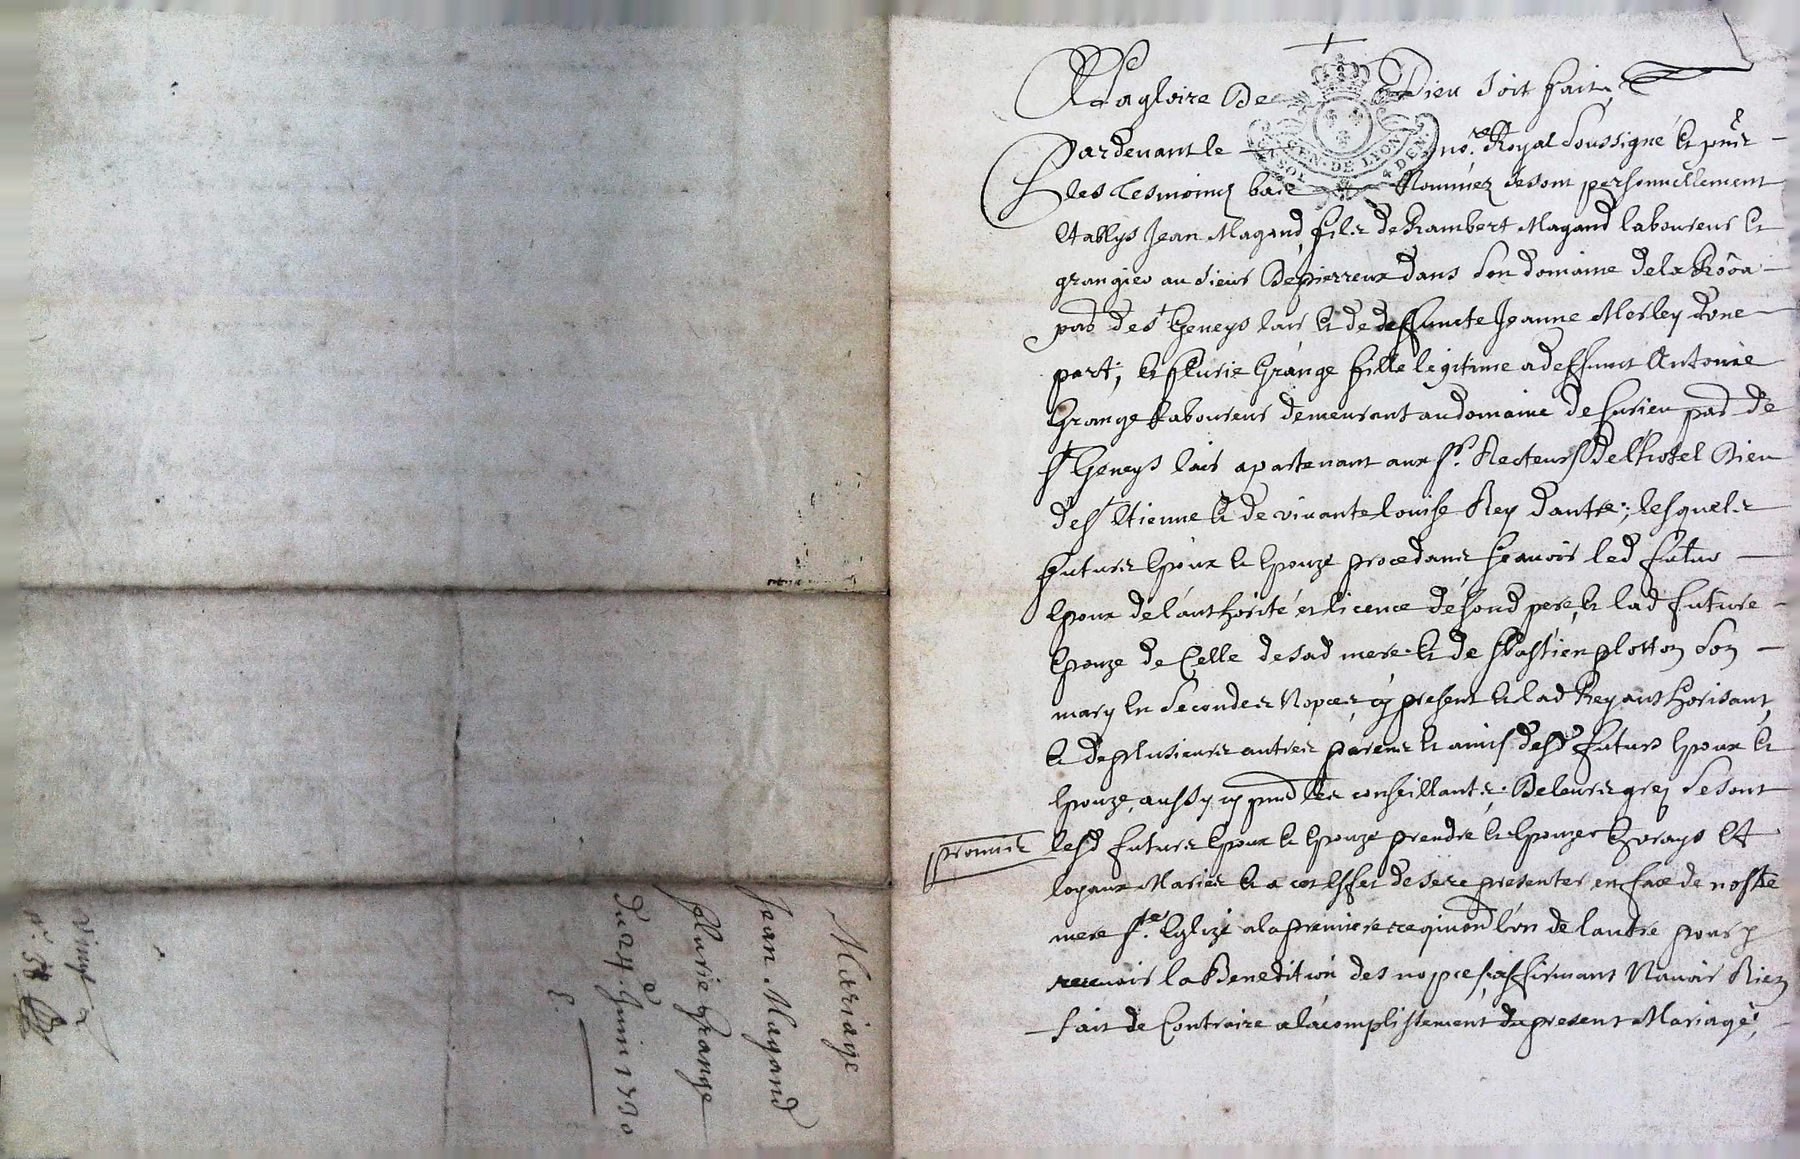 A la gloire De Dieu soit fait
GEN. DE LYON
4 DEN
Pardevant le no.re Royal soussigné et
les tesmoins bas Nommez se sont personnellement
Establys Jean Magand fils de Rambert Magand laboureur et
grangier au sieur Depierreux dans son domaine de la
par. de st Geneys lair et de deffuncte Jeanne Morley d'une
part, et fleurie Grange fille légitime a deffunct Antoine
Grange Laboureur demeurant au domaine de furieu par de
st Geneys lair apartenant aux srs Recteurs de l'hotel Dieu
de st Etienne et de vivante louise Rey d'autre; lesquels
futurs Epoux et Epouze procedans sçavoir led futur
Epoux de l'authorité et licence de sond pere, et lad future
Epouze de Celle de sad mere et de sbastien plotton son
mary En secondes Nopces cy present et lad Rey authorisant,
et de plusieurs autres parens et amis desd futurs Epoux et
Epouze, aussy cy les conseillants; De leurs grez se sont
promis
lesd futurs Epoux et Epouze prendre et Epouzer Et
loyaux Mariez et a cet Effet de se presenter en face de nostre
mere ste Eglize a la premiere l'un de l'autre pour y
recevoir la Benedition des nopces, affirmant N'avoir Rien
fait de Contraire a l'acomplissement du present Mariage,
Mariage
Jean Magand
fleurie Grange
Du 24 Juin 1730
E.
vingt